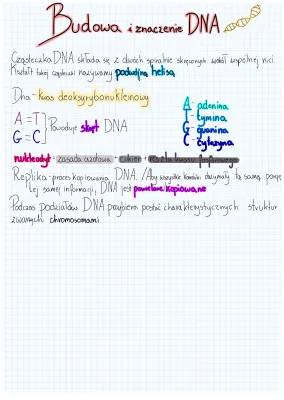 Budowa i znaczenie DNA
Cząsteczka DNA składa się z dwóch spiralnie skręconych wokół wspólnej nici.
Kształt takiej cząsteczki nazywamy podwójną helisą
Dna - kwas deoksyrybonukleinowy
A = T
G = C
Powoduje skręt DNA
A - adenina
T - tymina
G - guanina
C - cytozyna
nukleotyd - zasada azotowa + cukier + reszta kwasu fosforowego
Replika - proces kopiowania DNA. /Aby wszystkie komórki otrzymały tą samą porcję
tej samej informacji, DNA jest powielane/kopiowane
Podczas podziałów DNA przybiera postać charakterystycznych struktur
zwanych chromosomami.